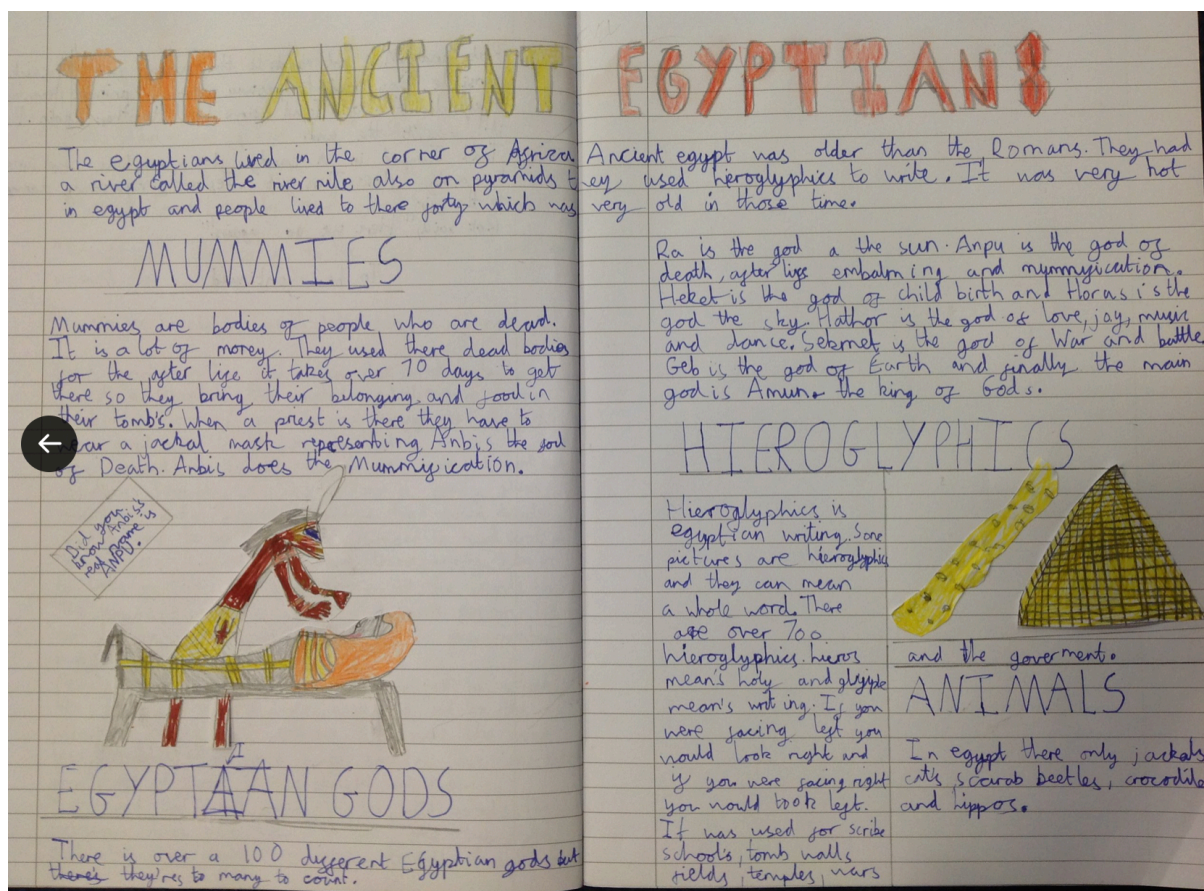 THE ANCIENT EGYPTIANS
The egyptians lived in the corner of Africa. Ancient egypt was older than the Romans. They had
a river called the river nile also on pyramids they used hieroglyphics to write. It was very hot
in egypt and people lived to there forty which was very old in those time.
MUMMIES
Mummies are bodies of people who are dead.
It is a lot of money. They used there dead bodies
for the after life it takes over 70 days to get
there so they bring their belonging and food in
their tomb's. When a priest is there they have to
wear a jackal mask representing Anbis the god
of Death. Anbis does the Mummification.
Did you
know Anbis's
real name is
ANPU?
EGYPTIAN GODS
There is over a 100 different Egyptian gods but
there's they'res to many to count.
Ra is the god a the sun. Anpu is the god of
death, after life embalming and mymmyfication.
Heket is the god of child birth and Horas is the
god the sky. Hathor is the god of love, joy, music
and dance. Sekmet is the god of War and battle
Geb is the god of Earth and finally the main
god is Amun. the king of Gods.
HIEROGLYPHICS
Hieroglyphics is
egyptian writing. Some
pictures are hieroglyphics
and they can mean
a whole word. There
are over 700
hieroglyphics. hieros
mean's holy and
mean's writing. If you
were facing left you
would look right and
if you were facing right
you would look left.
It was used for scribe
school's, tomb walls
fields, temples, wars
and the goverment.
ANIMALS
In egypt there only jackals
cats, scarab beetles, crocodile
and hippos.